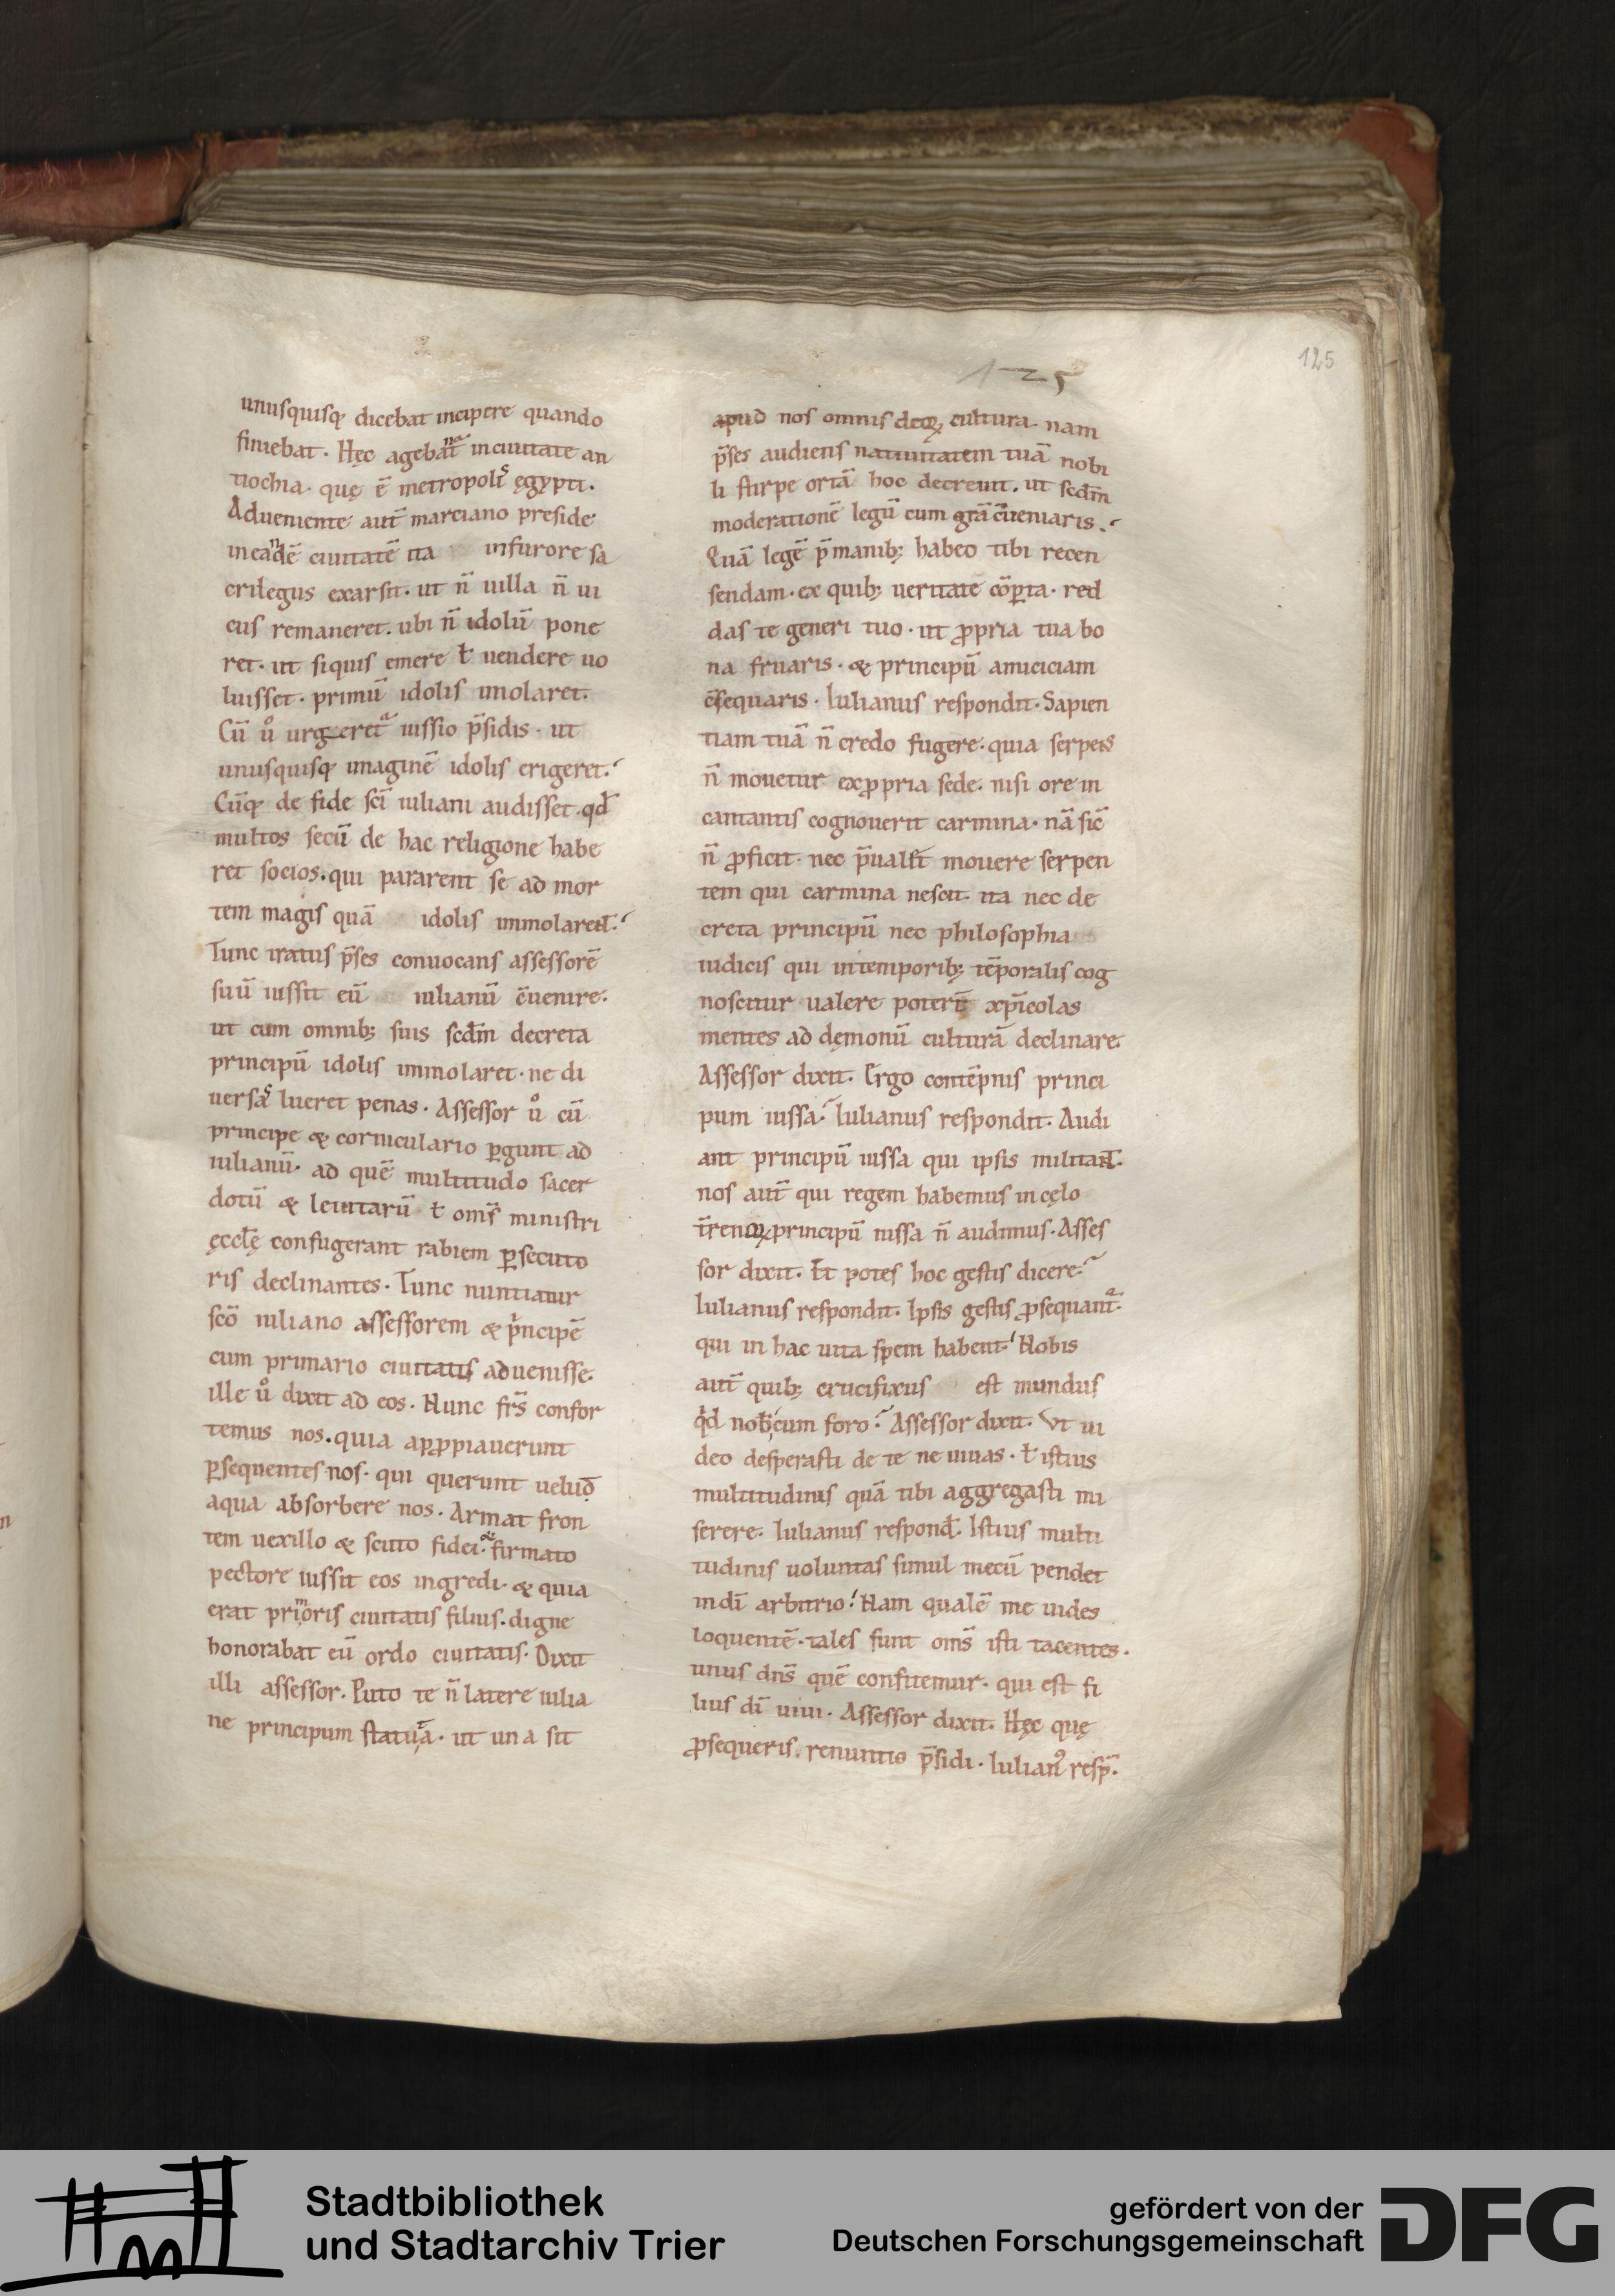 125
125
unusquisq; dicebat incipere quando
finiebat. Hęc agebat̄ inciuitate an
tiochia. quę ē metropolis ęgypti.
Adueniente aut̄ marciano preside
ineandē ciuitatē ita infurore sa
crilegus exarsit. ut n̄ uilla n̄ ui
cus remaneret. ubi n̄ idolū pone
ret. ut siquis emere ł uendere uo
luisset. primū idolis imolaret.
Cū u̇ urgeret iussio p̄sidis. ut
unusquisq; imaginē idolis erigeret.
Cūq; de fide sc̄i iuliani audisset. qđ
multos secū de hac religione habe
ret socios. qui pararent se ad mor
tem magis quā idolis immolarent.
Tunc iratus p̄ses conuocans assessorē
suū iussit eū iulianū c̄uenire.
ut cum omnib; suis scđm decreta
principū idolis immolaret. ne di
uersas lueret penas. Assessor u̇ cū
principe & corniculario ꝑgunt ad
iulianū. ad quē multitudo sacer
dotū & leuitarū ł om̄s ministri
ęccłę confugerant rabiem ꝑsecuto
ris declinantes. Tunc nuntiatur
sc̄o iuliano assessorem & pⁱncipē
cum primario ciuitatis aduenisse.
ille u̇ dixit ad eos. Nunc fr̄s confor
temus nos. quia aꝓpiauerunt
ꝑsequentes nos. qui querunt uelud
aqua absorbere nos. Armat fron
tem uexillo & scuto fidei. & firmato
pectore iussit eos ingredi. & quia
erat primoris ciuitatis filius. digne
honorabat eū ordo ciuitatis. Dixit
illi assessor. Puto te n̄ latere iulia
ne principum statuta. ut una sit
apud nos omnis deoꝝ cultura. nam
p̄ses audiens natiuitatem tuā nobi
li stirpe ortā hoc decreuit. ut scđm
moderationē legū cum gr̄a c̄ueniaris.
Quā legē p̄ manib; habeo tibi recen
sendam. ex quib; ueritate cōꝑta. red
das te generi tuo. ut ꝓpria tua bo
na fruaris. & principū amiciciam
c̄sequaris. Iulianus respondit. Sapien
tiam tuā n̄ credo fugere. quia serpens
n̄ mouetur exꝓpria sede. nisi ore in
cantantis cognouerit carmina. nā sic̄
n̄ ꝓficit. nec p̄ualet mouere serpen
tem qui carmina nescit. ita nec de
creta principū nec philosophia
iudicis qui intemporib; tēporalis cog
noscitur ualere poterit xp̄icolas
mentes ad demonū culturā declinare.
Assessor dixit. Ergo contēpnis princi
pum iussa. Iulianus respondit. Audi
ant principū iussa qui ipsis militant.
nos aut̄ qui regem habemus incęlo
t̄renoꝝ principū iussa n̄ audimus. Asses
sor dixit. Et potes hoc gestis dicere.
Iulianus respondit. Ipsis gestis ꝓsequant̄.
qui in hac uita spem habent. Nobis
aut̄ quib; crucifixus est mundus
qⁱd nob̄ cum foro. Assessor dixit. Vt ui
deo desperasti de te ne uiuas. ł istius
multitudinis quā tibi aggregasti mi
serere. Iulianus respond̄. Istius multi
tudinis uoluntas simul mecū pendet
indī arbitrio. Nam qualē me uides
loquentē. tales sunt om̄s isti tacentes.
unus dn̄s quē confitemur. qui est fi
lius dī uiui. Assessor dixit. Hęc quę
ꝓsequeris. renuntio p̄sidi. Iulianꝰ resp̄.
Stadtbibliothek
und Stadtarchiv Trier
gefördert von der
Deutschen Forschungsgemeinschaft
DFG